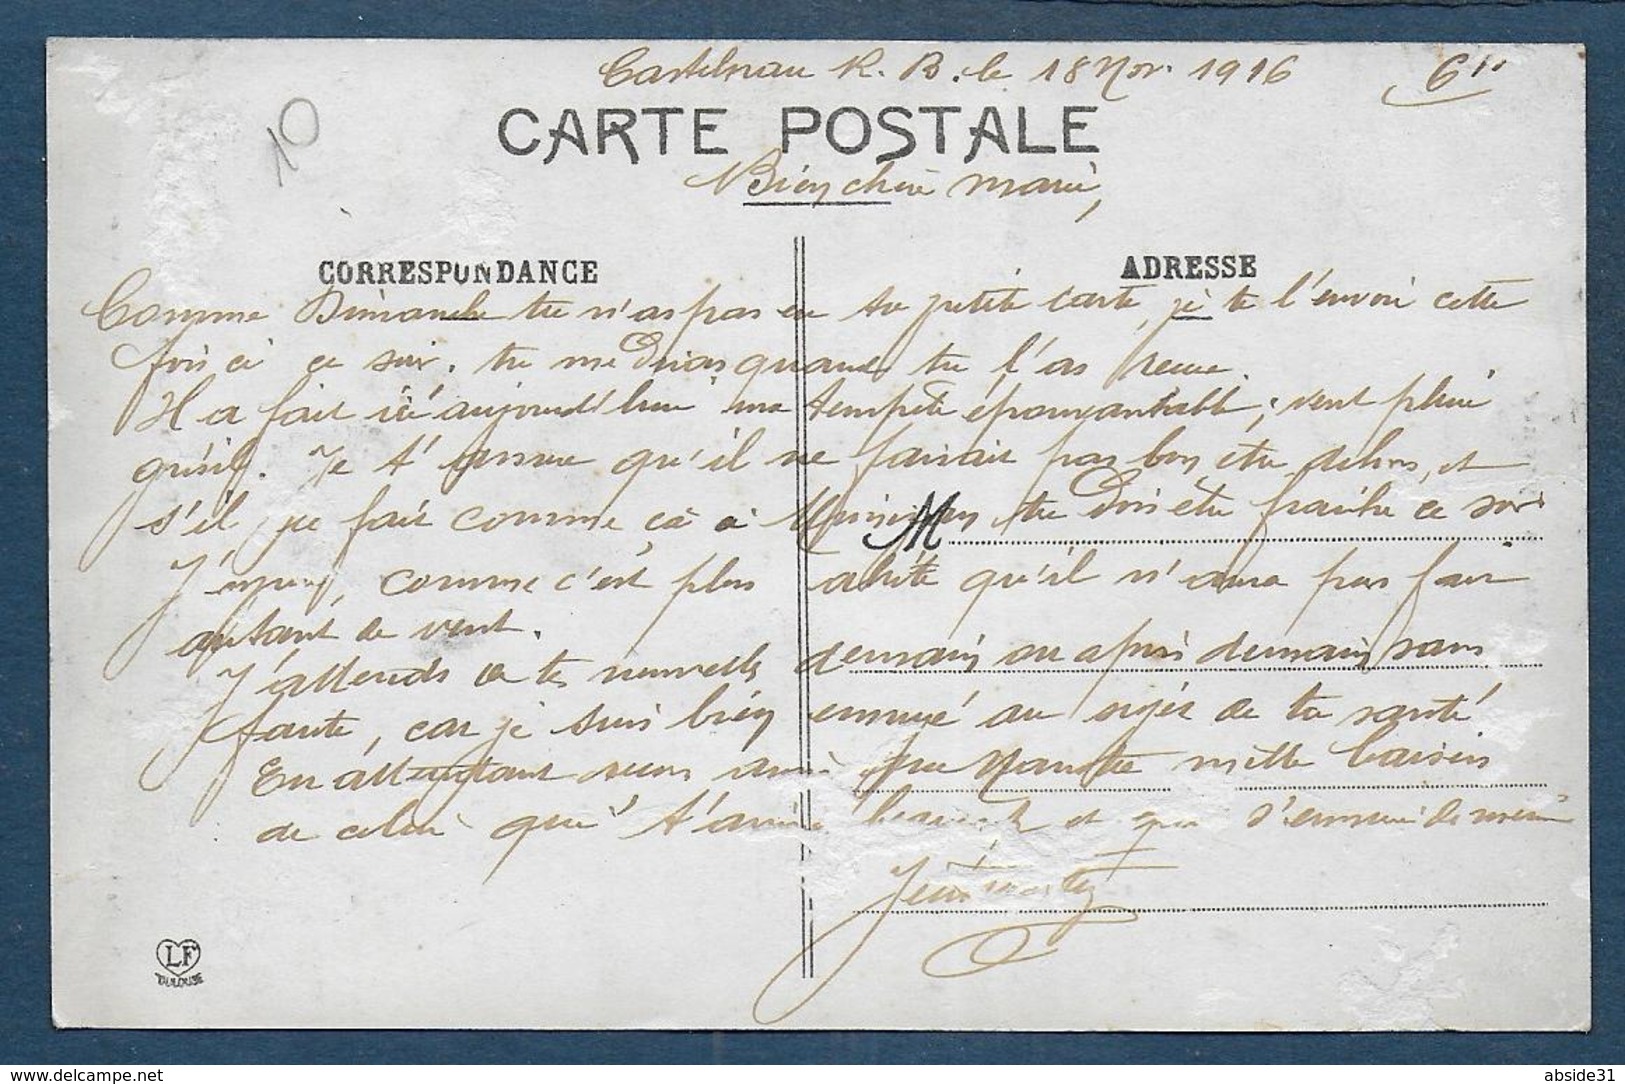 Castelnau R. B. le 18 Nov. 1916 6"
10
CARTE POSTALE
Bien chère Marie,
CORRESPONDANCE
ADRESSE
Comme Dimanche tu n'as pas eu ta petite carte, je te l'envoie cette
fois ci ce soir. tu me diras quand tu l'as reçue.
Il a fait ici aujourd'hui une tempête épouvantable, vent pluie
grésil. Je t'assure qu'il ne faisait pas bon être dehors, et
s'il a fait comme ça à tu dois être fraîche ce soir
M
J'espère, comme c'est plus abrité qu'il n'aura pas fait
autant de vent.
J'attends de tes nouvelles demain ou après demain sans
faute, car je suis bien ennuyé au sujet de ta santé
En attendant reçois mille baisers
de celui qui t'aime et qui s'ennuie de
LF
TOULOUSE
abside31
https://www.delcampe.net